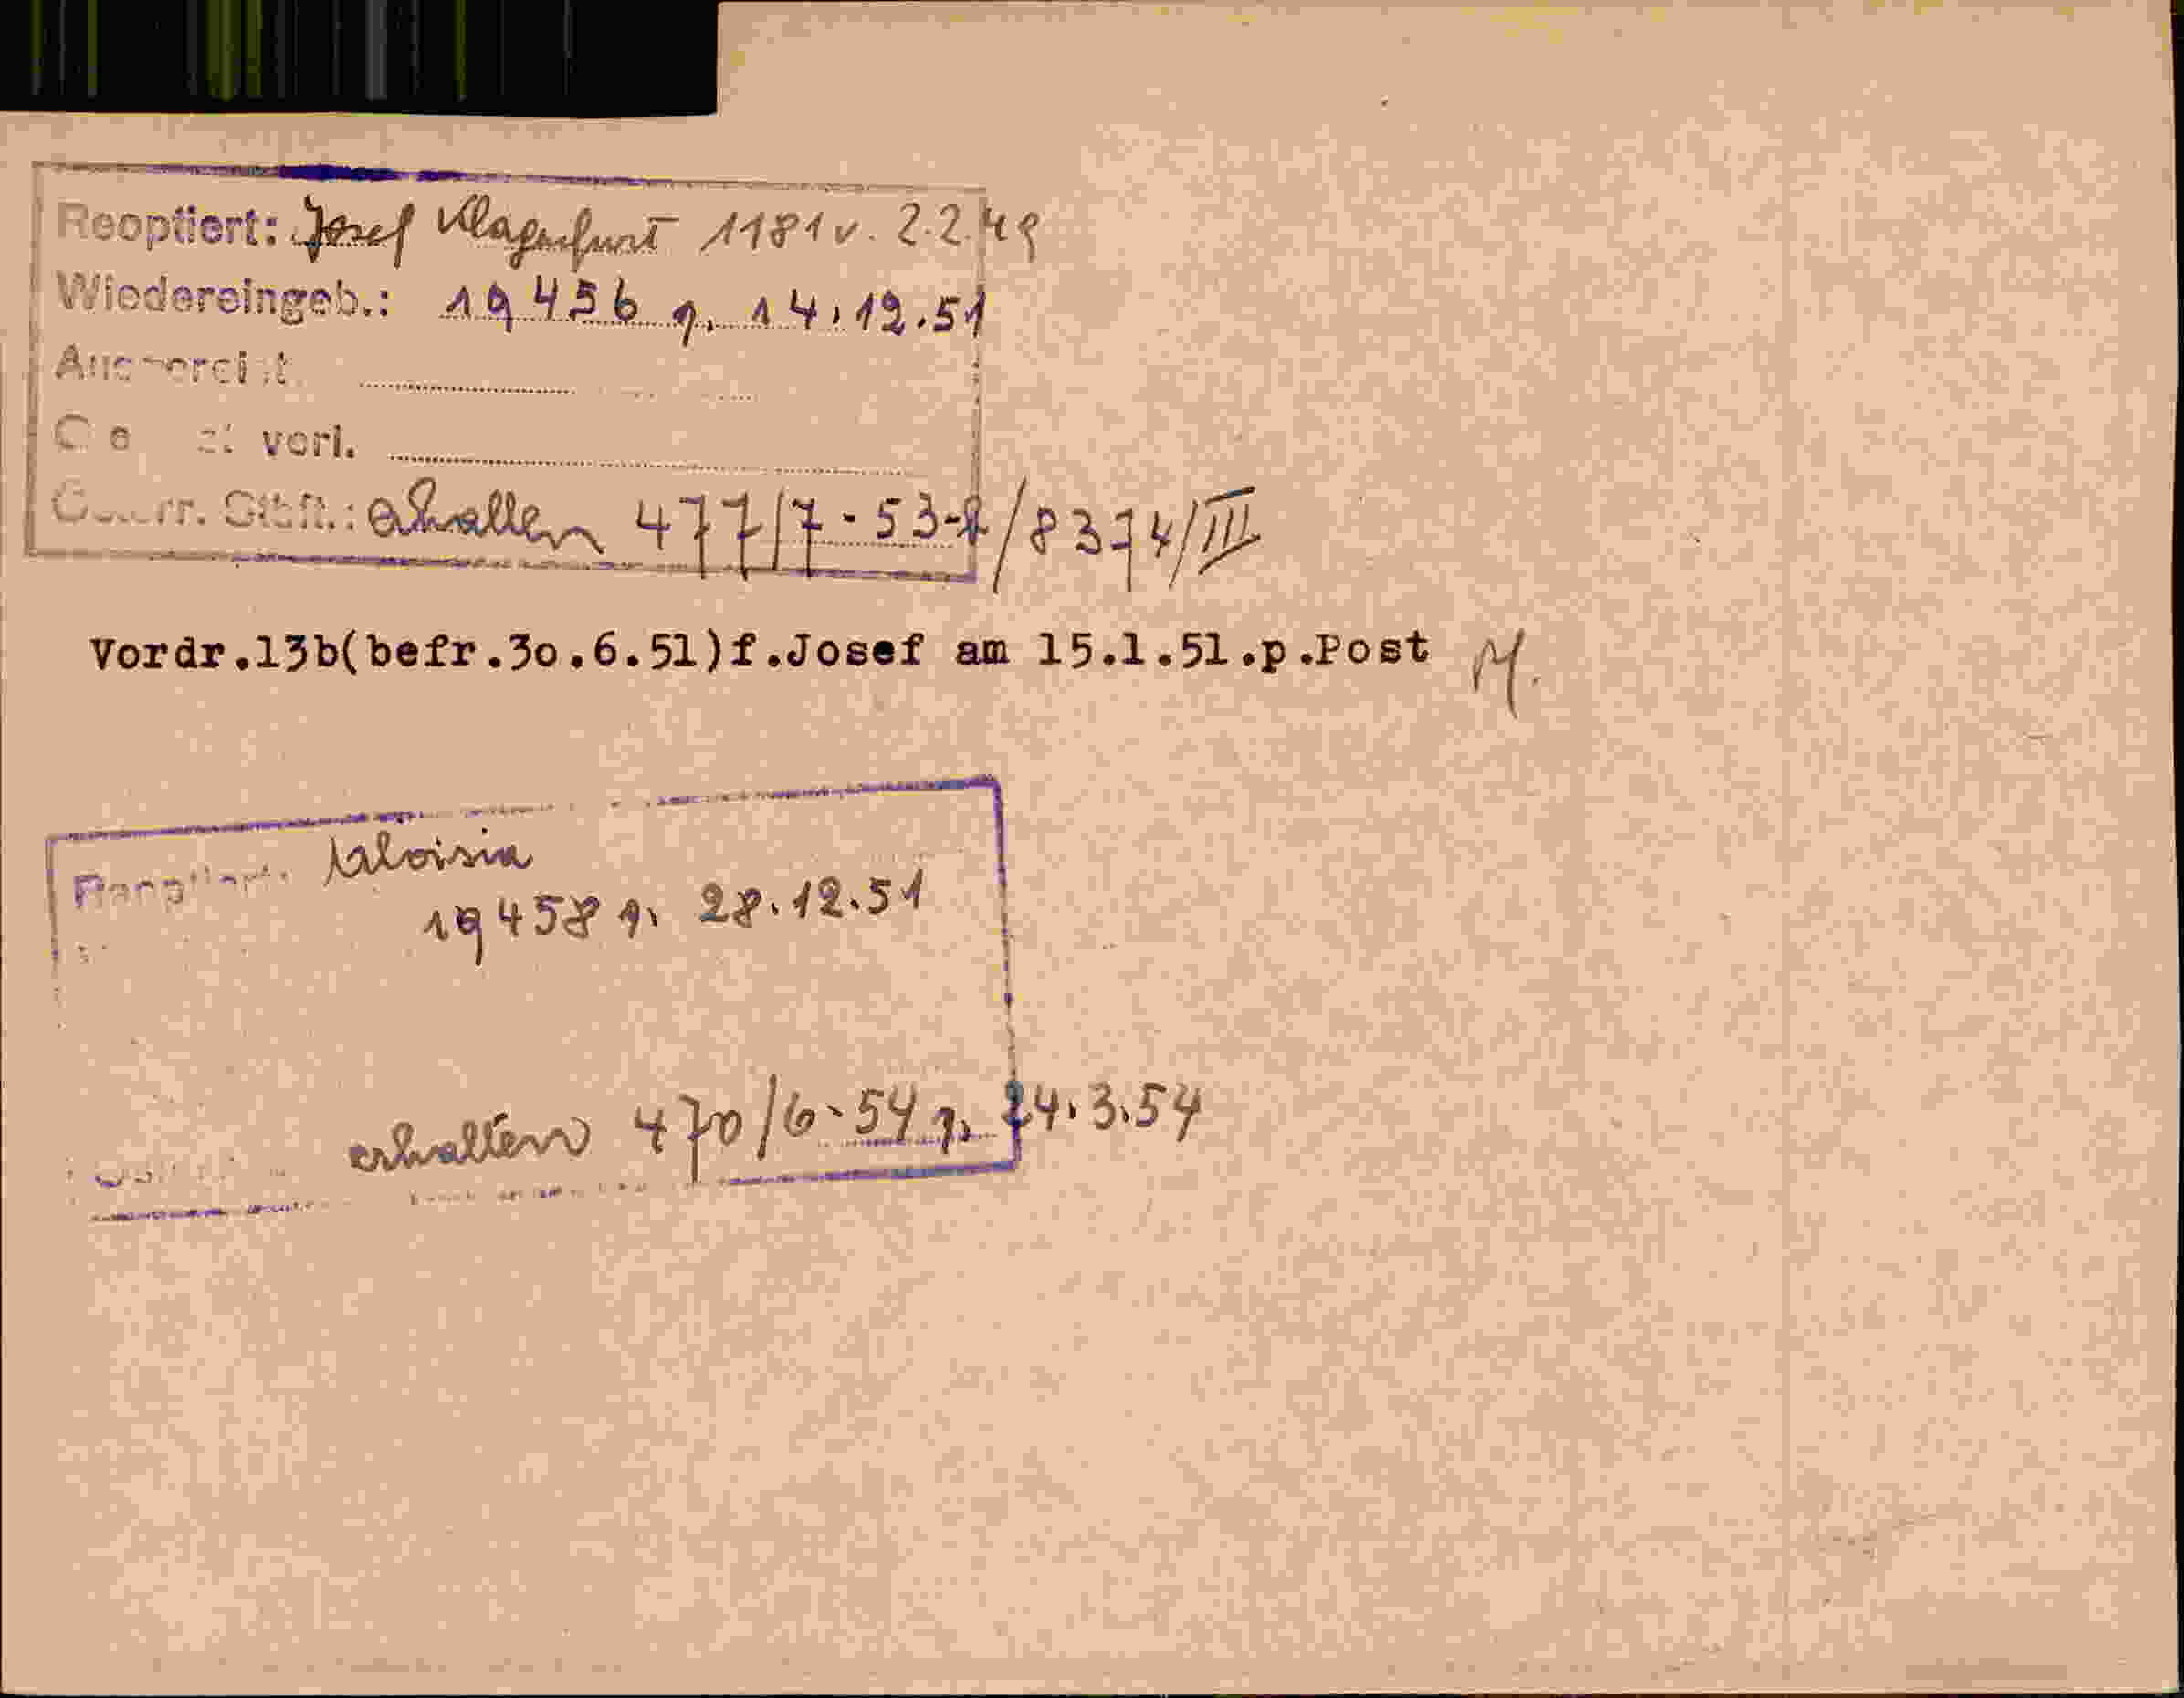 Reoptiert: Josef Klagenfurt 1181 v. 2.2.49
Wiedereingeb.: 19456 v. 14.12.51
vorl.
erhalten 477/7-53-8/8374/III
Vordr.13b(befr.30.6.51)f.Josef am 15.1.51.p.Post M.
Aloisia
19458 v. 28.12.51
erhalten 470/6-54 v. 24.3.54